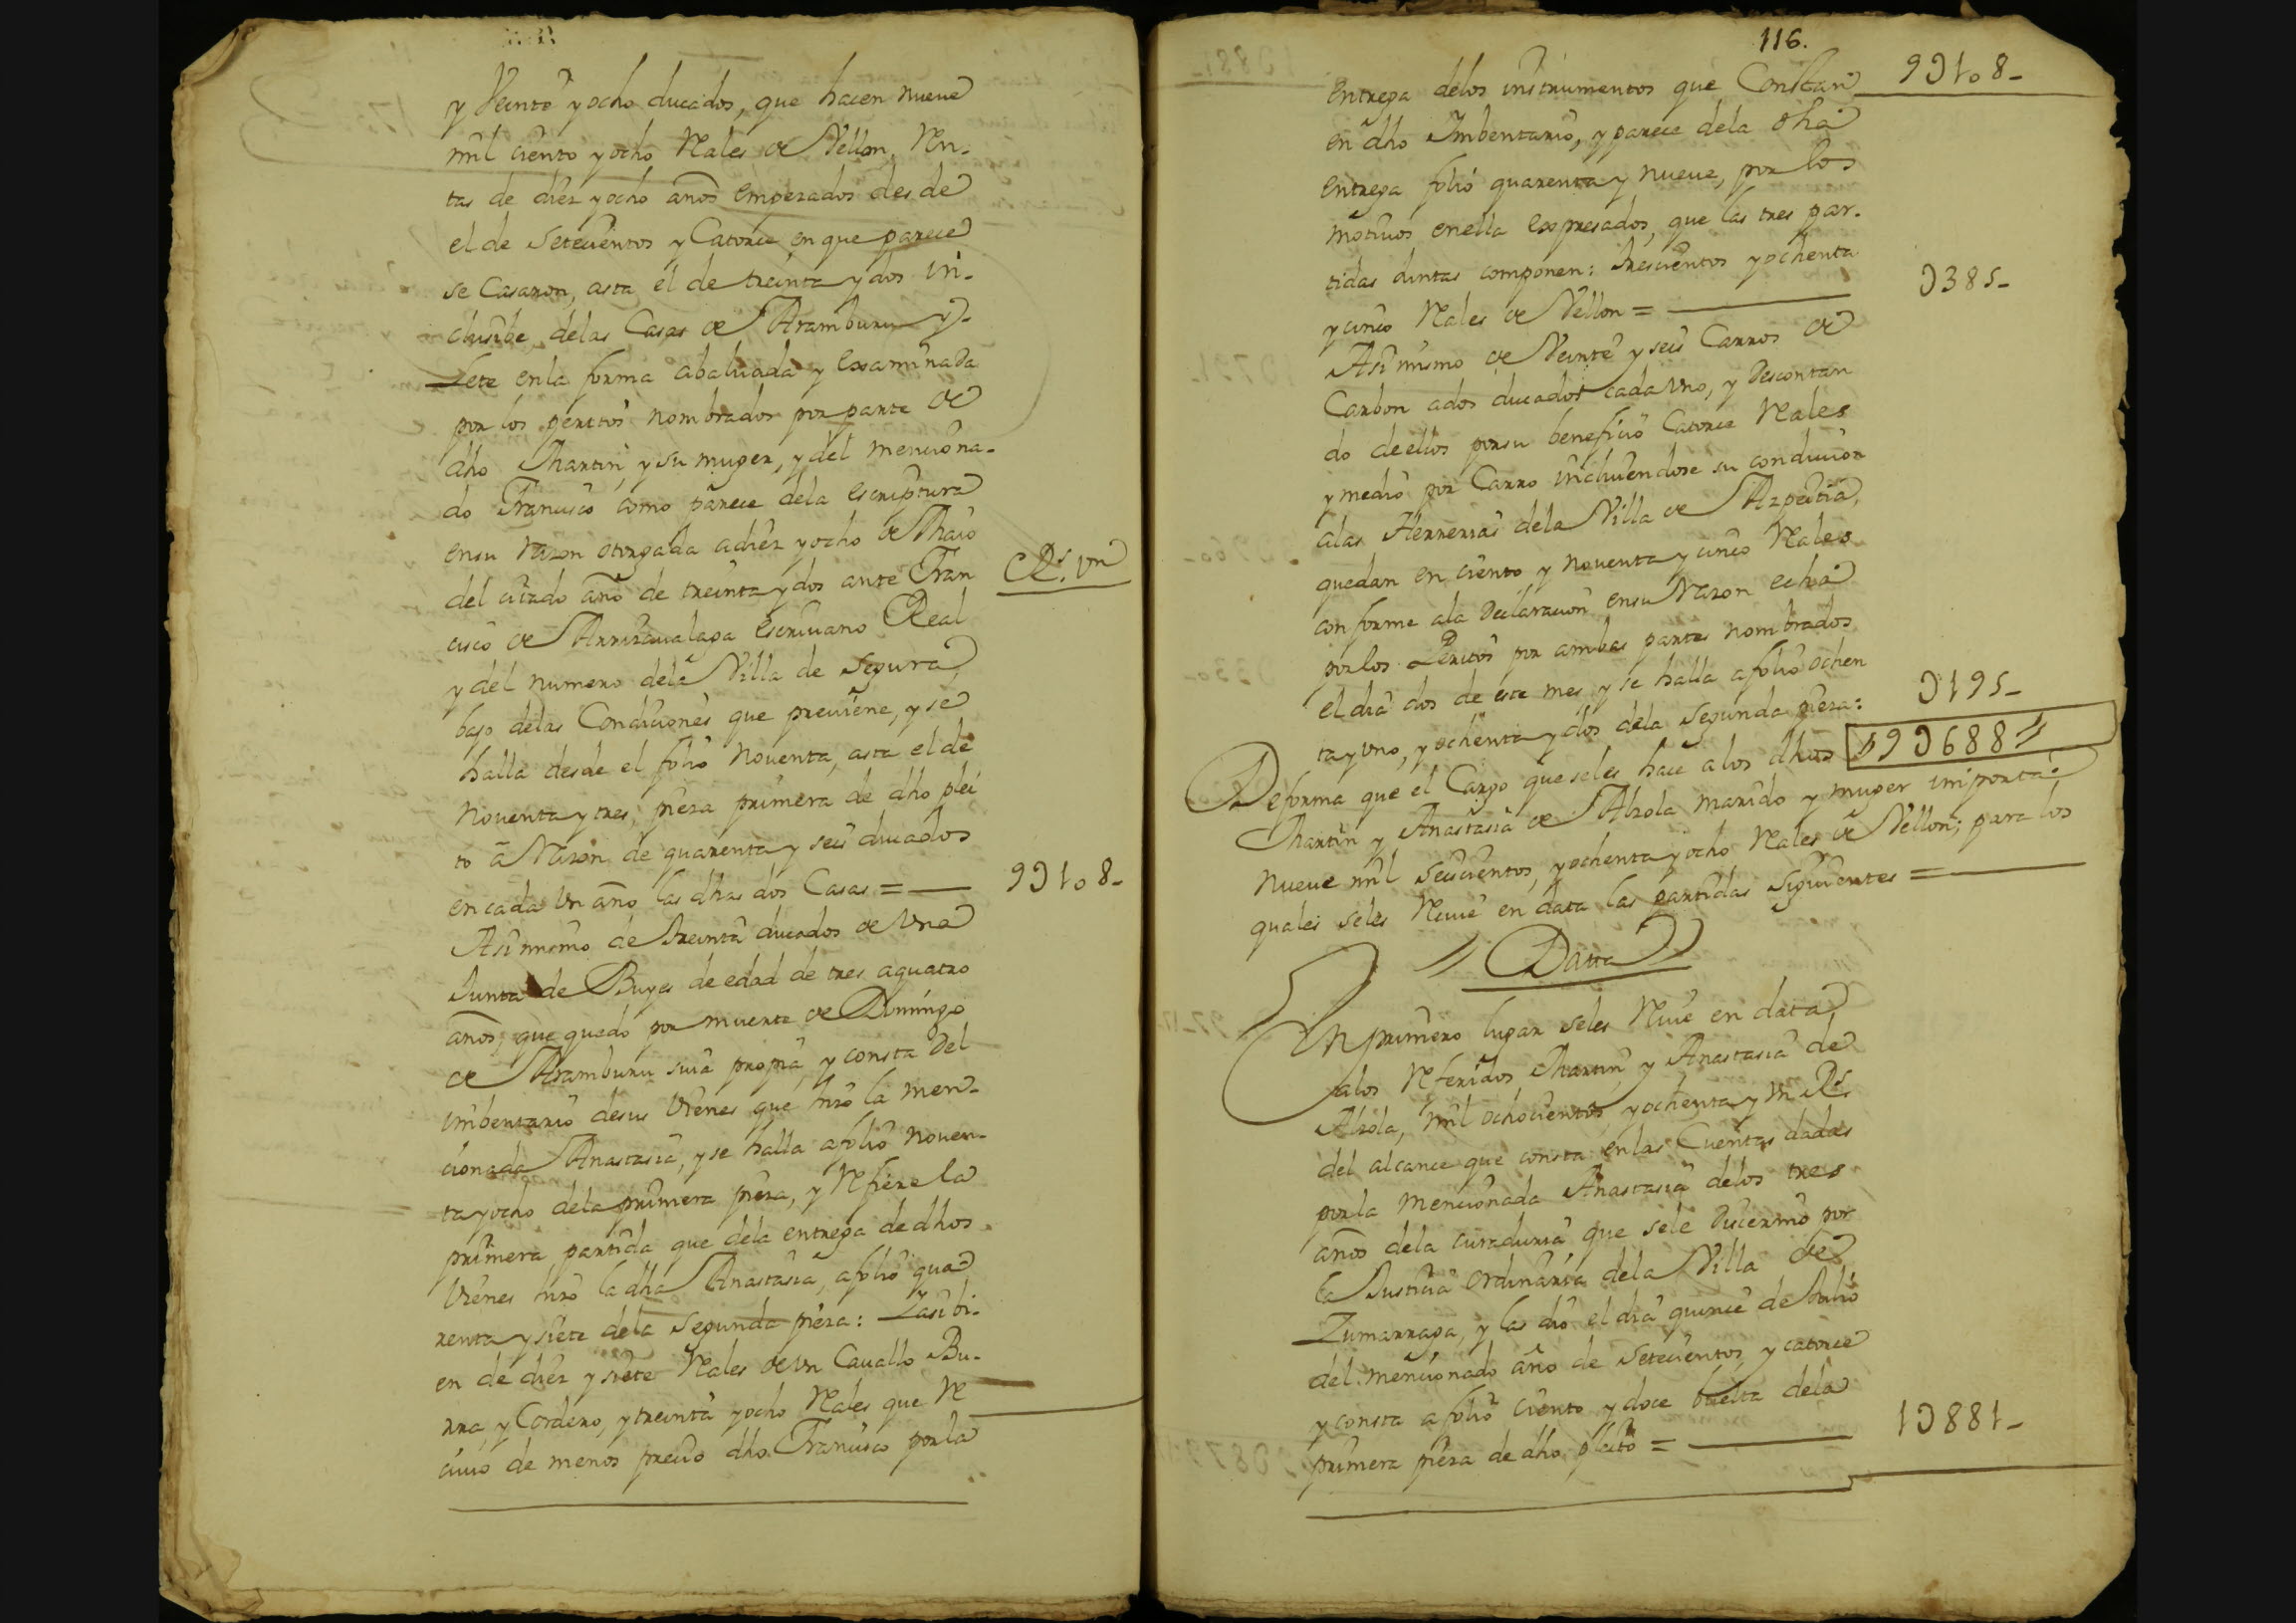 y Veinte y ocho ducados, que hacen nueue
mil ciento y ocho Rales de Vellon, Ren-
tas de diez y ocho años empezados desde
el de Setecientos y Catorce, en que parece
se Casaron, asta el de treinta y dos in-
clusibe, delas Casas de Aramburu y
Lete enla forma abaluada y Examinada
por los peritos nombrados por parte de
dho Martin, y su muger, y del menciona-
do Francisco como parece dela Escriptura
ensu Razon otorgada a diez y ocho de Maio
del citado año de treinta y dos ante Fran
Rs. vn
cisco de Arrizaualaga Escriuano Real
y del numero dela Villa de Segura,
bajo delas Condiciones que preuiene, y se
halla desde el folio Nouenta, asta el de
Nouenta y tres, pieza primera de dho plei
to â Razon de quarenta y seis ducados
en cada Un año las dhas dos Casas =
9Ɔ1o8-
Asimismo de treinta ducados de Una
Junta de Buyes de edad de tres a quatro
años, que quedò por muerte de Domingo
de Aramburu suia propia, y consta del
imbentario desus Vienes que hizo la men-
cionada Anastasia, y se halla a folio nouen-
ta y ocho dela primera pieza, y Refiere la
primera partida que dela entrega de dhos
Vienes hizo la dha Anastasia, a folio qua
renta y siete dela Segunda pieza: Y asi bi-
en de diez y siete Rales de Vn Cauallo Bu-
rra, y Cordero, y treinta y ocho Rales que Re
ciuio de menos precio dho Francisco por la
116.
entrega delos instrumentos que Constan
9Ɔ1o8-
en dho Imbentario, y parece dela dha
entrega folio quarenta y nueue, por los
motiuos enella Expresados, que las tres par-
tidas juntas componen: trescientos y ochenta
y cinco Rales de Vellon =
Ɔ385-
Asimismo de Veinte y seis Carros de
Carbon a dos ducados cada Uno, y Descontan
do de ellos por su beneficio Catorce Rales
y medio por Carro incluiendose su conducion
alas Herrerias dela Villa de Azpeitia,
quedan en ciento y nouenta y cinco Rales
conforme ala Declaracion ensu Razon echa
por los Peritos por ambas partes nombrados
el dia dos de este mes, y se halla a folio ochen
ta y Uno, y ochenta y dos dela Segunda pieza:
Ɔ195-
De forma que el Cargo que seles hace a los dhos
9Ɔ688
Martin y Anastasia de Alzola marido y muger importa:
nueue mil seiscientos, y ochenta y ocho Rales de Vellon; para los
quales seles Reciue en data las partidas siguientes =
Datta
En primero lugar seles Reciue en data
alos Referidos Martin, y Anastasia de
Alzola, mil ochocientos, y ochenta y Un Rs.
del alcance que consta enlas Cuentas dadas
por la mencionada Anastasia delos tres
años dela curaduria que sele Dicernio por
la Justicia ordinaria dela Villa de
Zumarraga, y las dio el dia quince de Julio
del mencionado año de Setecientos y catorce
y consta a folio ciento y doce buelta dela
primera pieza de dho pleito =
1Ɔ881-